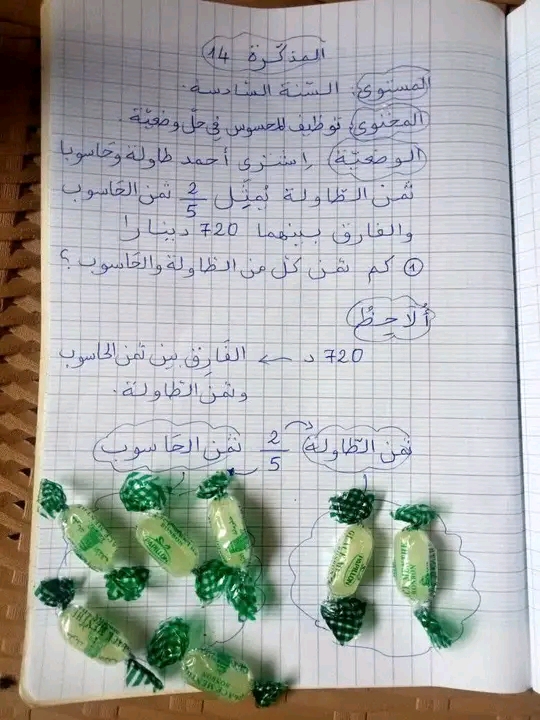 المذكّرة 14
المستوى: السّنة السّادسة.
المحتوى: توظيف المحسوس في حلّ وضعيّة.
الوضعيّة: اِشترى أحمد طاولة وحاسوبا
ثمن الطّاولة يُمثّل 2/5 ثمن الحَاسوب
والفارق بينهما 720 دينارا
① كم ثمن كلّ من الطّاولة والحَاسوب؟
أُلَاحِظُ
720 د ← الفَارِق بين ثمن الحاسوب
وثمن الطّاولة.
ثمن الطّاولة 2/5 ثمن الحَاسوب